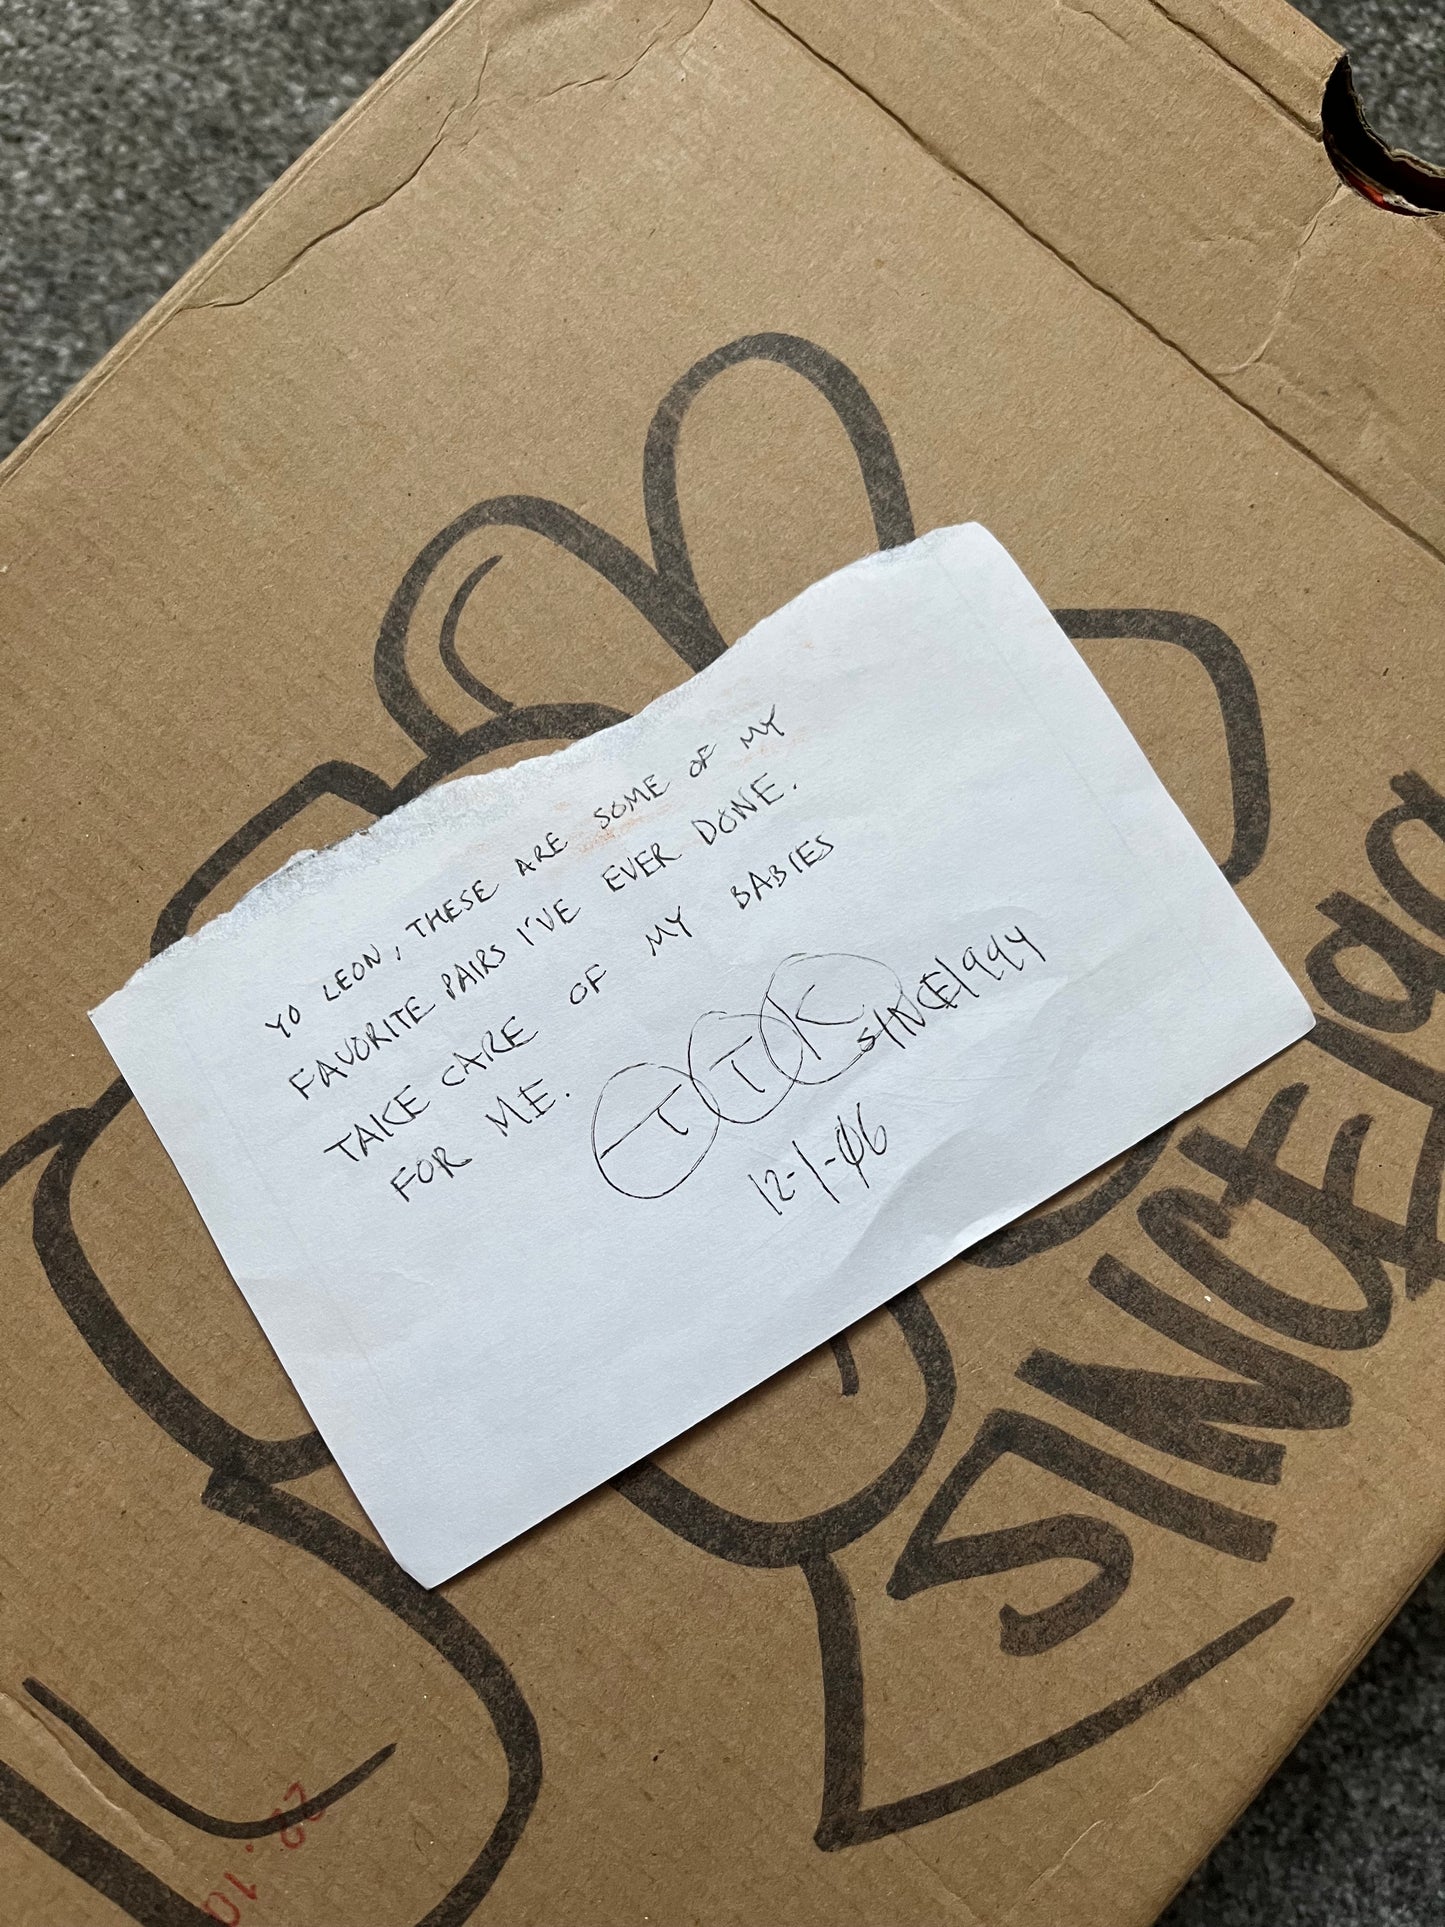 YO LEON, THESE ARE SOME OF MY
FAVORITE PAIRS I'VE EVER DONE.
TAKE CARE OF MY BABIES
FOR ME.
TTK SINCE 1994
12-1-06
SINCE 199